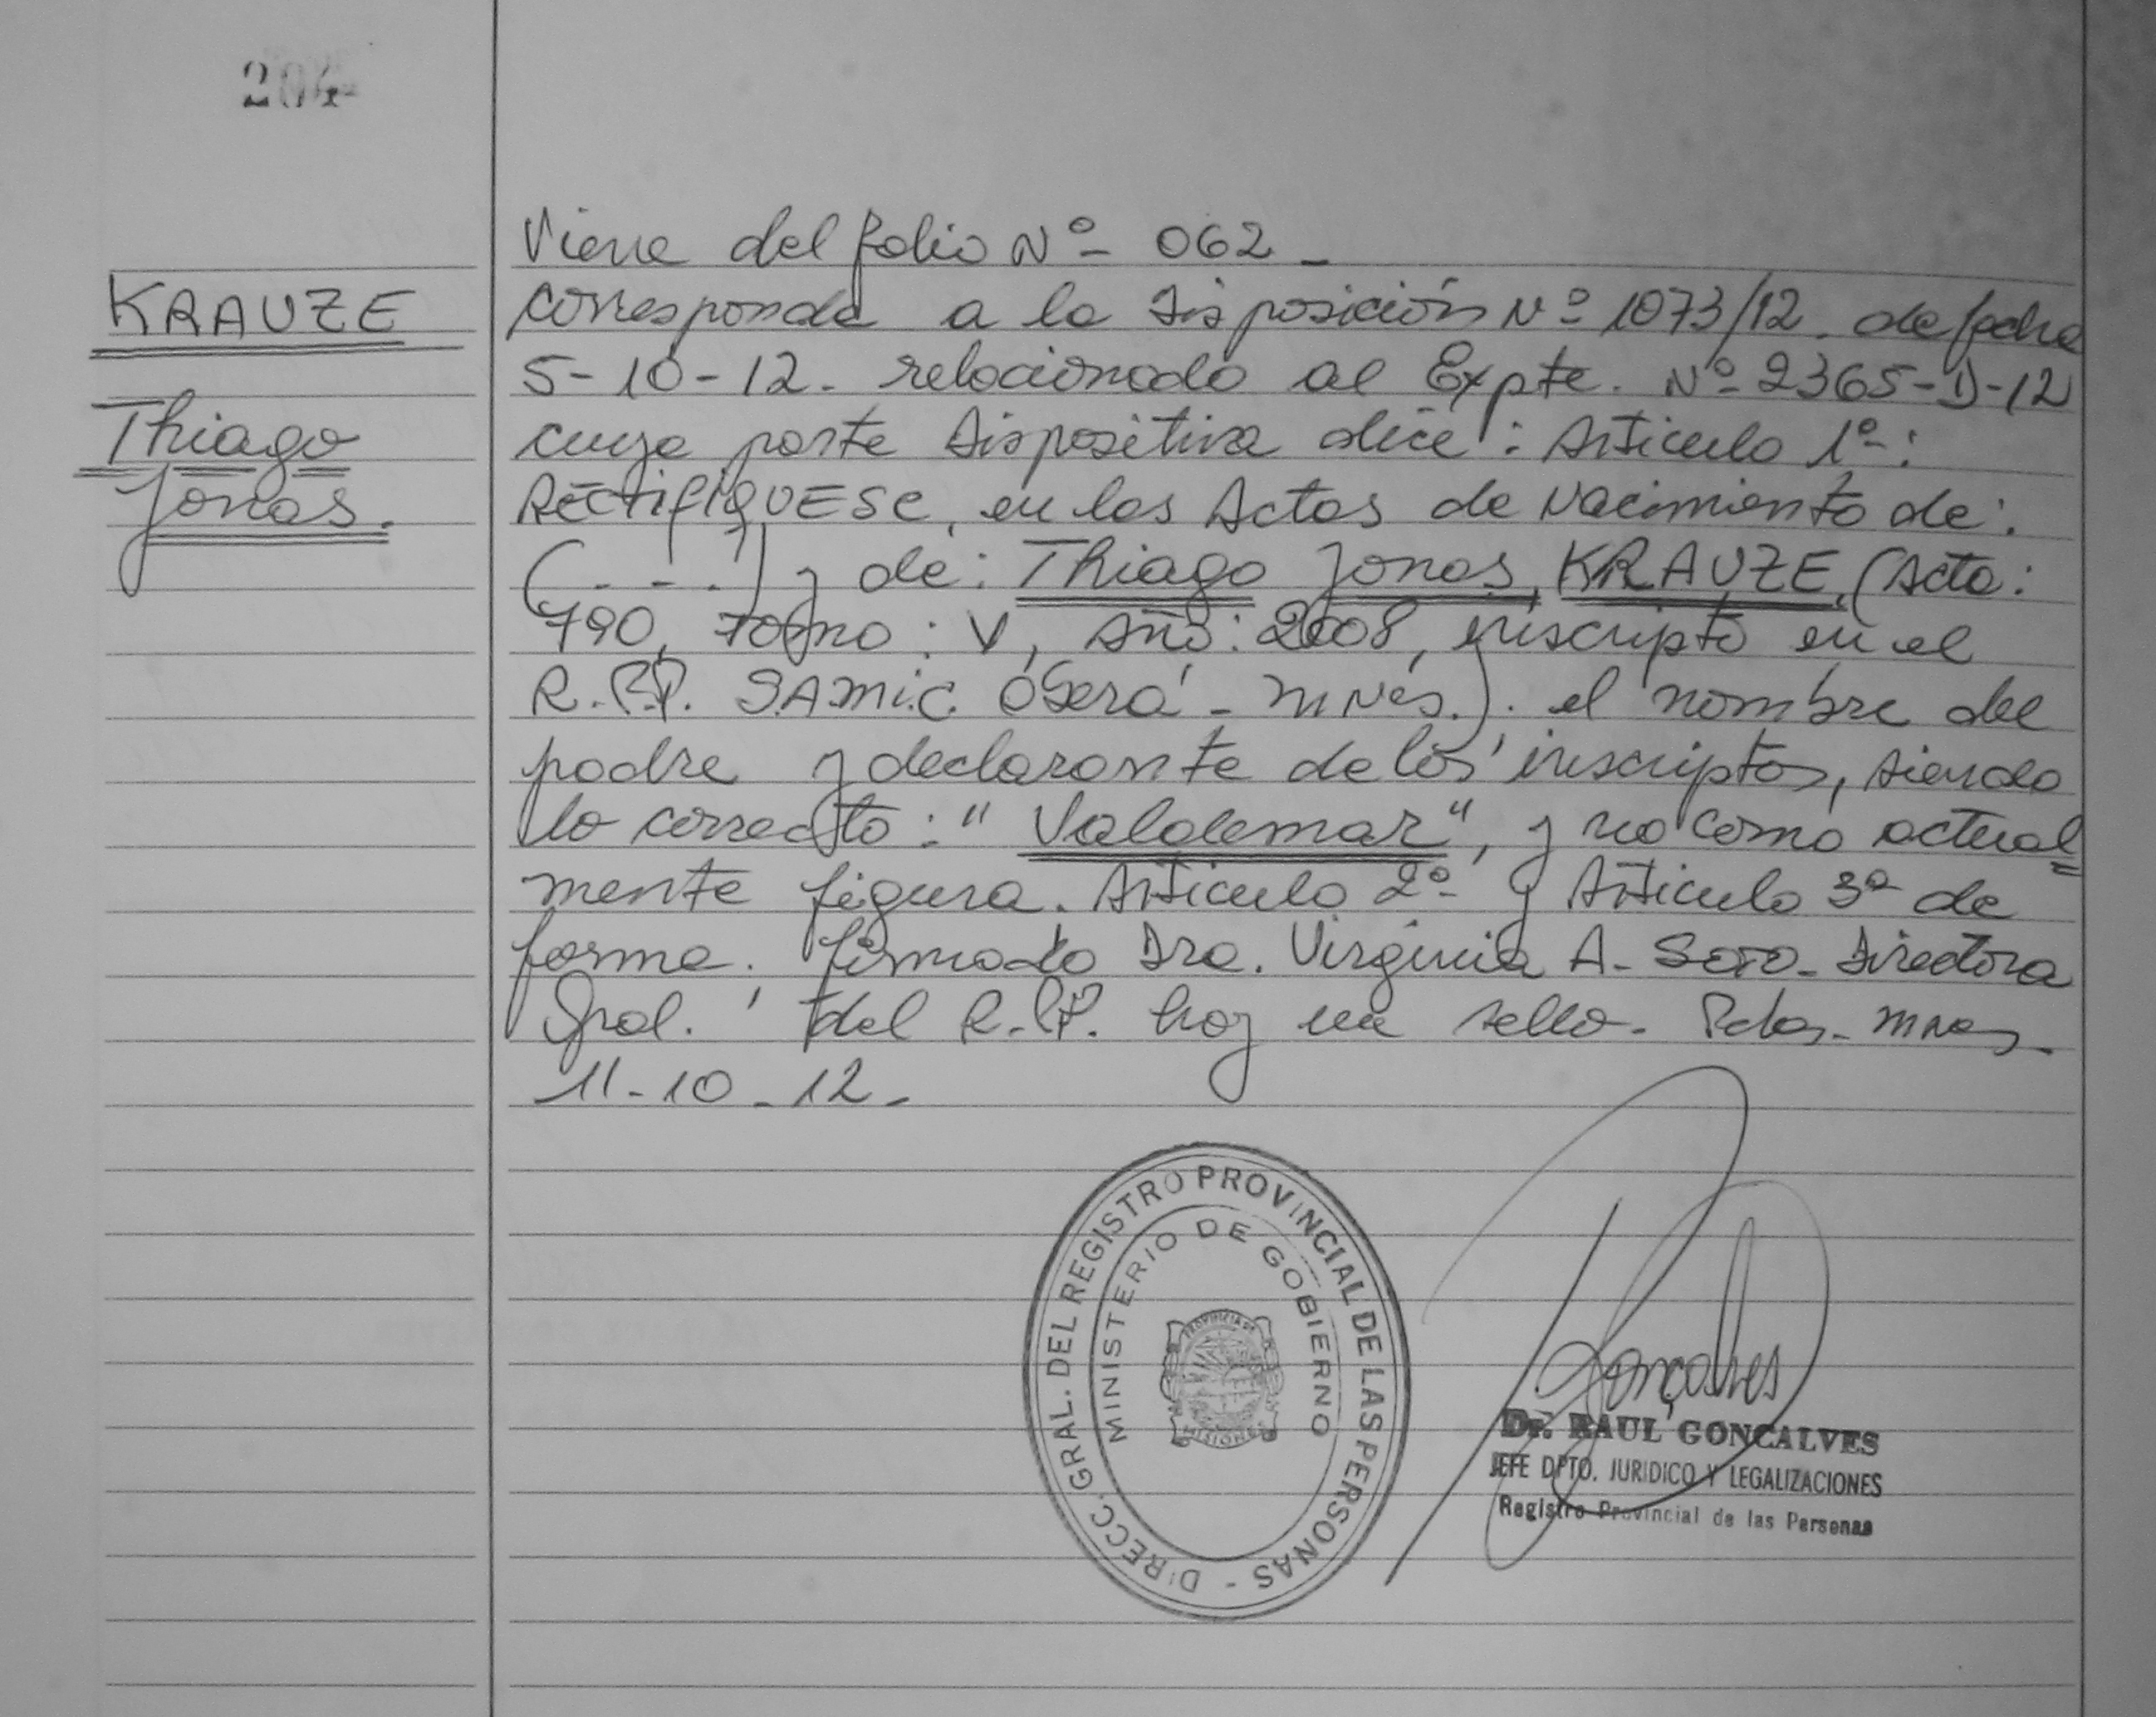 204
KRAUZE
Thiago
Jonas.
Viene del folio Nº- 062 -
corresponde a la Disposición Nº 1073/12. de fecha
5-10-12. relacionado al Expte. Nº 2365-D-12
cuya parte Dispositiva dice: Articulo 1º-:
RECTIFIQUESE, en las Actas de Nacimiento de:
(...) y de: Thiago Jonas, KRAUZE, (Acta:
790, Tomo: V, Año: 2008, inscripto en el
R.P.P. S.A.M.I.C. Oberá - Mnes.). el nombre del
padre y declarante de los inscriptos, siendo
lo correcto: "Valdemar", y no como actual=
mente figura. Articulo 2º y Articulo 3º de
forma. firmado Dra. Virginia A. Soto. Directora
Gral. del R.P.P. hay un sello. Pdas. Mnes.
11-10-12.-
DIRECC. GRAL. DEL REGISTRO PROVINCIAL DE LAS PERSONAS -
MINISTERIO DE GOBIERNO
PROVINCIA DE
MISIONES
Gonçalves
Dr. RAUL GONCALVES
JEFE DPTO. JURIDICO Y LEGALIZACIONES
Registro Provincial de las Personas